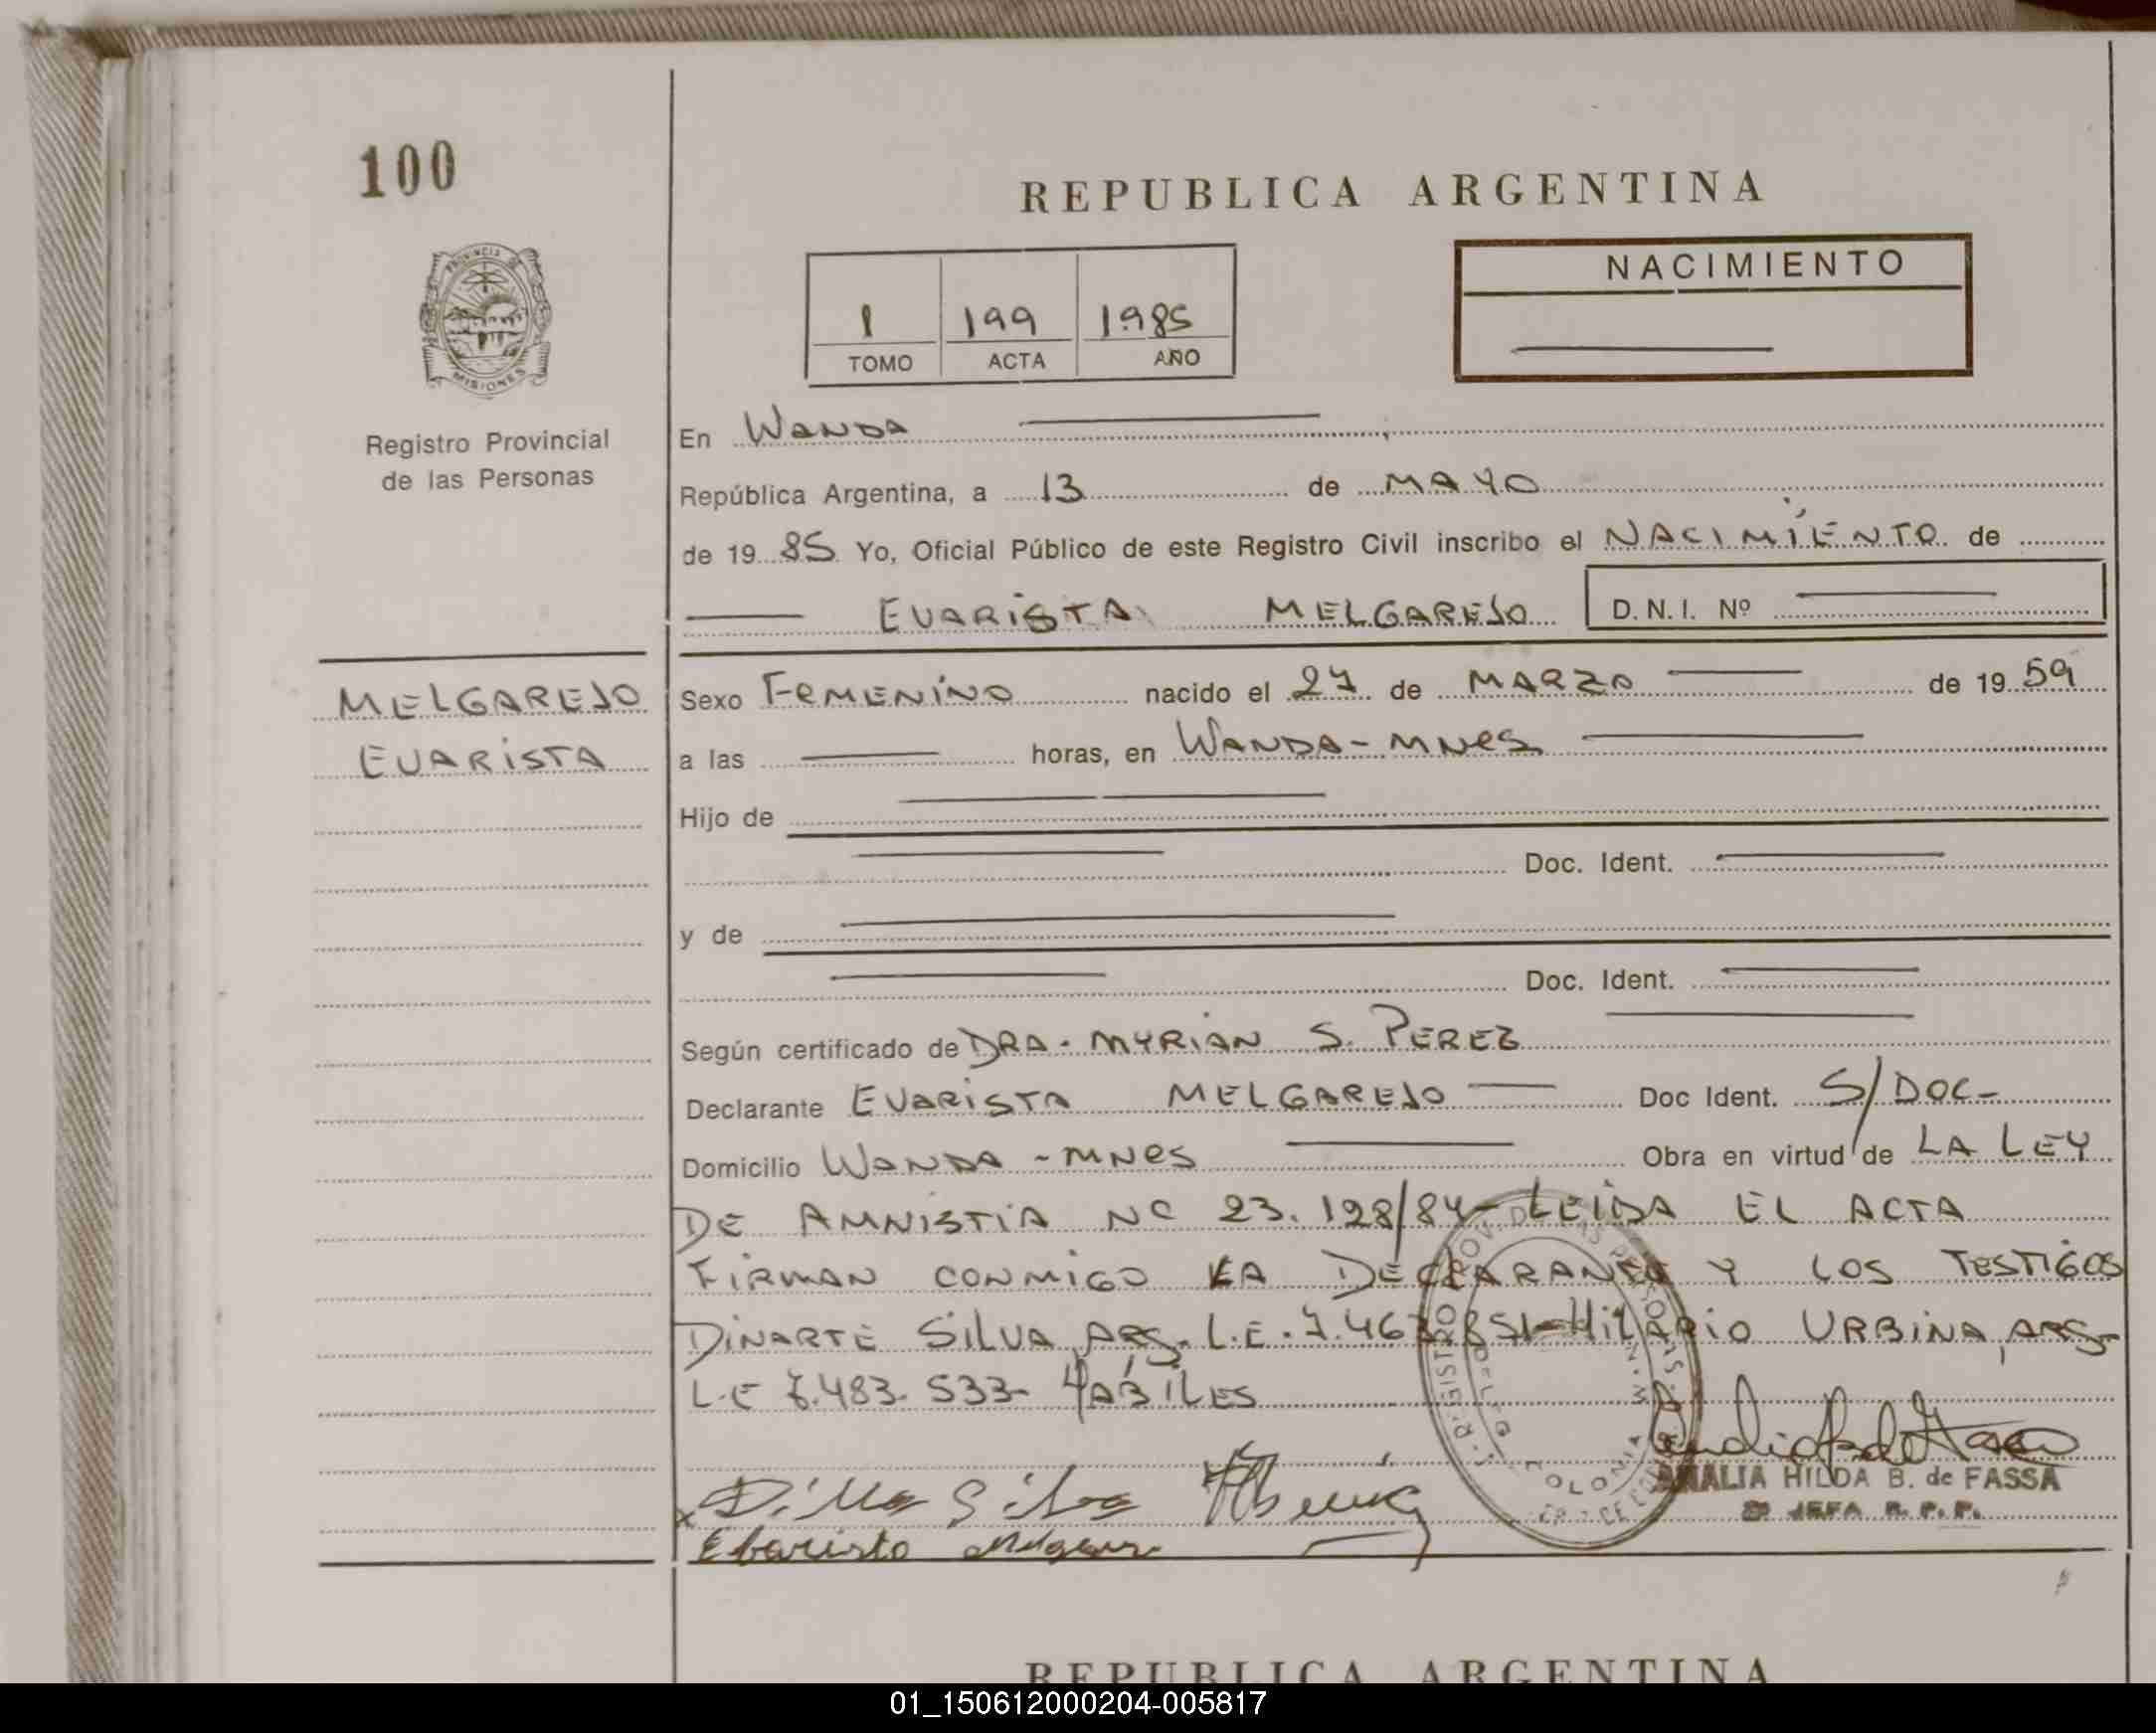 100
REPUBLICA ARGENTINA
NACIMIENTO
1 199 1985
TOMO ACTA AÑO
PROVINCIA DE MISIONES
Registro Provincial
de las Personas
En WANDA
República Argentina, a 13 de MAYO
de 19 85 Yo, Oficial Público de este Registro Civil inscribo el NACIMIENTO de
EVARISTA MELGAREJO D.N.I. Nº
MELGAREJO
EVARISTA
Sexo FEMENINO nacido el 27 de MARZO de 19 59
a las horas, en WANDA - MNES
Hijo de
Doc. Ident.
y de
Doc. Ident.
Según certificado de DRA. MYRIAN S. PEREZ
Declarante EVARISTA MELGAREJO Doc Ident. S/DOC-
Domicilio WANDA - MNES Obra en virtud de LA LEY
DE AMNISTIA Nº 23.128/84- LEIDA EL ACTA
FIRMAN CONMIGO LA DECLARANTE Y LOS TESTIGOS
DINARTE SILVA, ARG. L.E. HILARIO URBINA, ARG-
L.E 7.483.533- HABILES
Silva
Ebaristo
AMALIA HILDA B. de FASSA
JEFA R. P. P.
REPUBLICA ARGENTINA
01_150612000204-005817